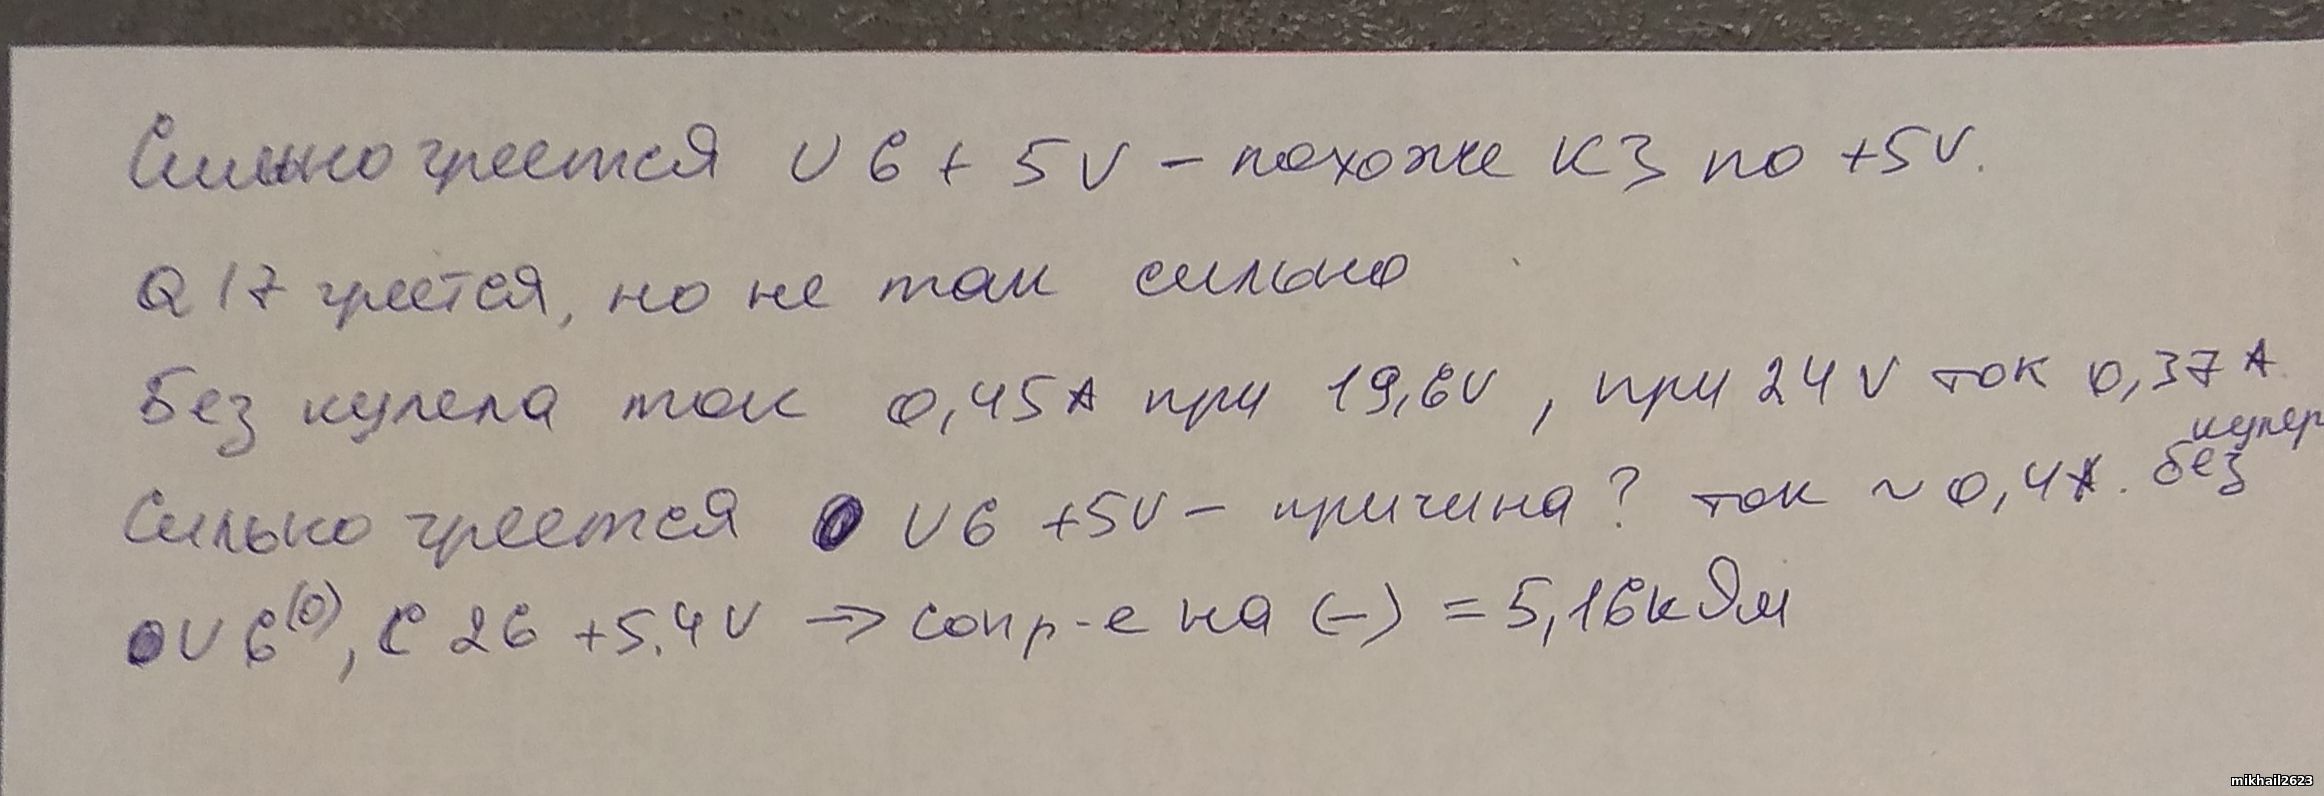 Сильно греется U6 + 5V - похоже КЗ по +5V.
Q17 греется, но не так сильно
Без кулера ток 0,45А при 19,6V, при 24V ток 0,37А
Сильно греется U6 +5V - причина? ток ~0,4А. без кулер
U6(0), С26 +5.4V → сопр-е на (-) = 5,16кОм
mikhail2623